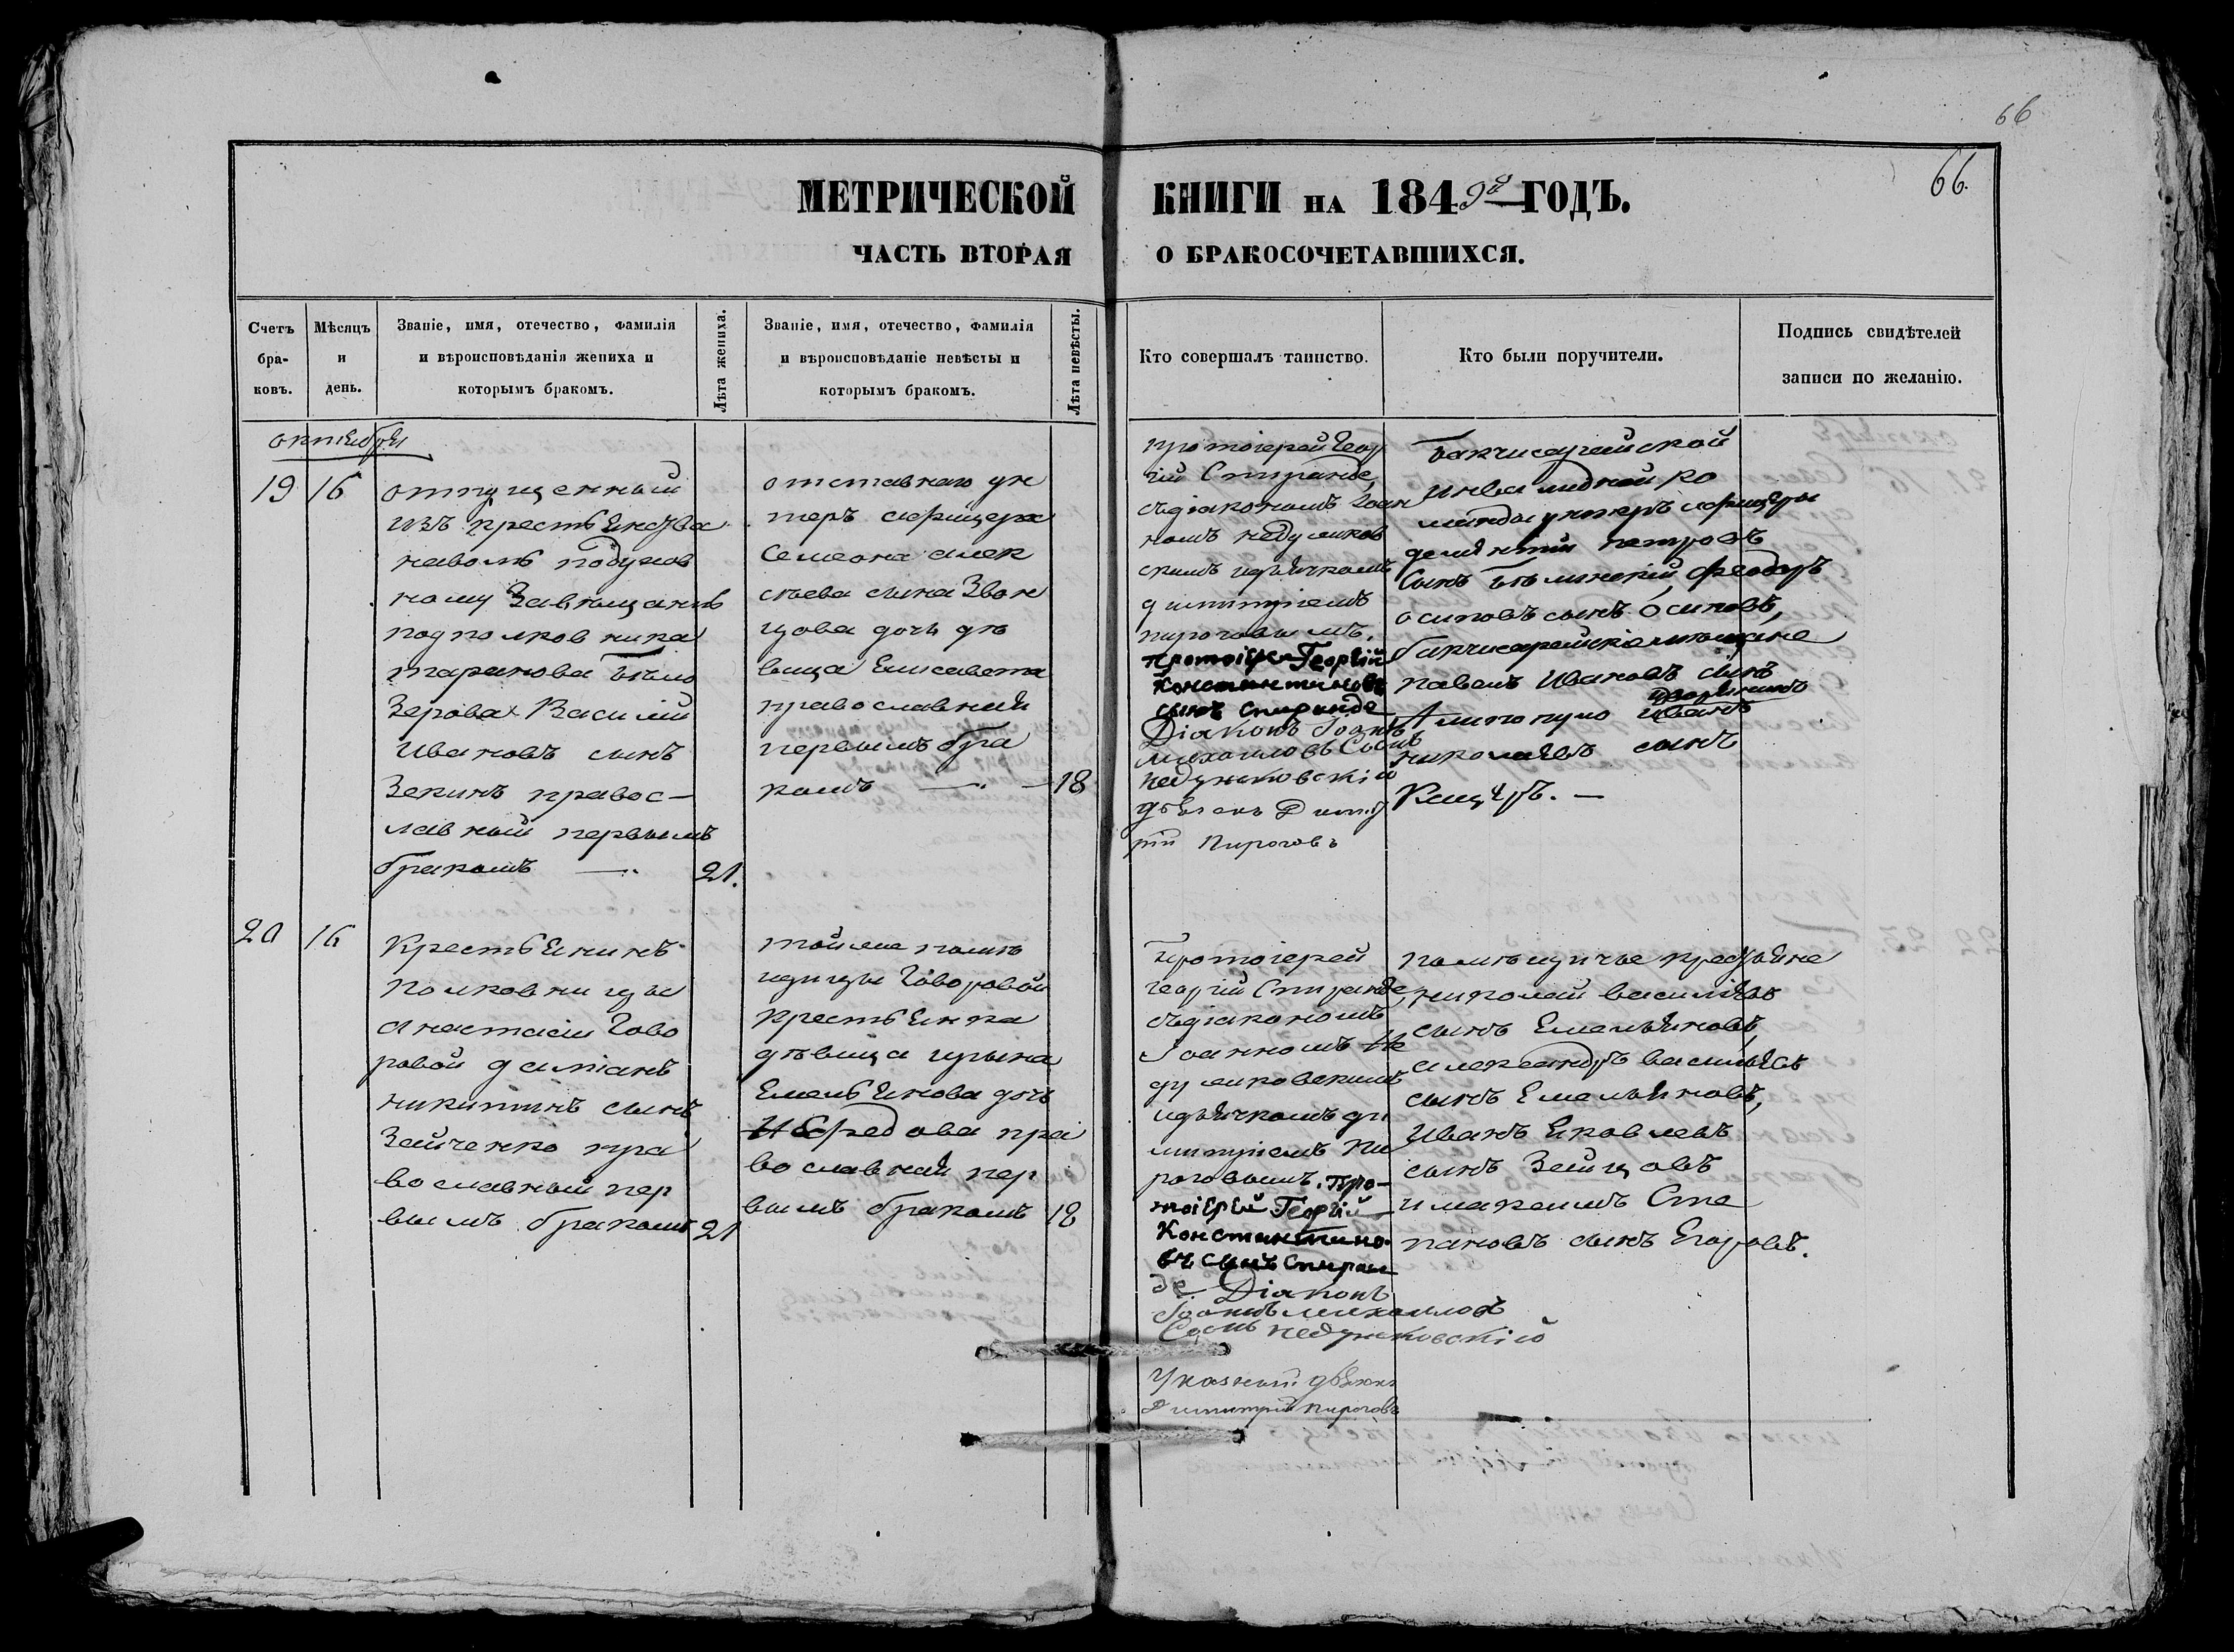 66
66.
МЕТРИЧЕСКОЙ КНИГИ НА 1849й ГОДЪ.
ЧАСТЬ ВТОРАЯ О БРАКОСОЧЕТАВШИХСЯ.
Счетъ
бра-
ковъ.
Мѣсяцъ
и
день.
Званіе, имя, отечество, фамилія
и вѣроисповѣданія жениха и
которымъ бракомъ.
Лѣта жениха.
Званіе, имя, отечество, фамилія
и вѣроисповѣданіе невѣсты и
которымъ бракомъ.
Лѣта невѣсты.
Кто совершалъ таинство.
Кто были поручители.
Подпись свидѣтелей
записи по желанію.
октября
19
16
отпущенный
изъ крестьянства
наволь подухов
ному Завѣщанію
подполковника
таранова Бѣло
Зерова Василій
Ивановъ сынъ
Зекинъ правос-
лавный первымъ
бракомъ
21.
отставнаго ун
теръ офицера
Семеона алек
сѣева сына Звон
цова дочь дѣ
вица Елисавета
православная
первымъ бра
комъ
18
протоіерей Геор
гій Спиранде,
съдіакономъ Іоан
номъ недулков
скимъ идьячкомъ
димитріемъ
пироговымъ.
протоіерей Георгій
Константиновъ
сынъ Спиранде
Діаконъ Іоаннъ
Михаиловъ Сынъ
недулковскій
дьячокъ Димит
рій Пироговъ
Бакчисарайской
инвалидной ко
манды унтеръ офицеры
дементій петровъ
Сынъ Бѣлинскій, Феодоръ
осиповъ сынъ Осиповъ,
бакчисарайскіе мѣщане
павелъ Ивановъ сынъ
дворянинъ
Алитопуло Иванъ
николаевъ сынъ
20
16
Крестьянинъ
полковницы
Анастасіи Гово
ровой даміанъ
никитинъ сынъ
Зайченко пра
вославный пер
вымъ бракомъ
21
тойже помѣ
щицы Говоровой
крестьянка
дѣвица ирина
Емельянова дочь
Нефедова пра
вославная пер
вымъ бракомъ
18
Протоіерей
георгій Спиранде,
съдіакономъ
Іоанномъ Не
дулковскимъ
идьячкомъ ди
митріемъ Пи
роговымъ. Про-
тоіерей Георгій
Константино-
въ сынъ Спиран
де. Діаконъ
Іоаннъ михаиловъ
Сынъ недулковскій
Указный дьячокъ
Димитрій пироговъ
помѣщичье крестьяне
николай васильевъ
сынъ Емельяновъ,
александръ васильевъ
сынъ Емельяновъ,
Иванъ Яковлевъ
сынъ Зайцовъ
и максимъ Сте
пановъ сынъ Егоровъ.